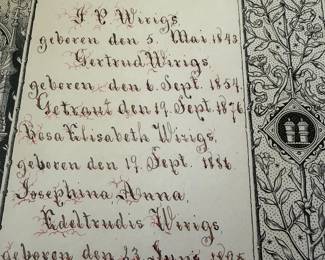 J. P. Wirigs,
geboren den 5. Mai 1843
Gertrud Wirigs,
geboren den 6. Sept. 1854.
Getraut den 19. Sept. 1876
Rosa Elisabeth Wirigs,
geboren den 19. Sept. 1886
Josephina Anna,
Edeltrudis Wirigs,
geboren den 23. Juni 1895